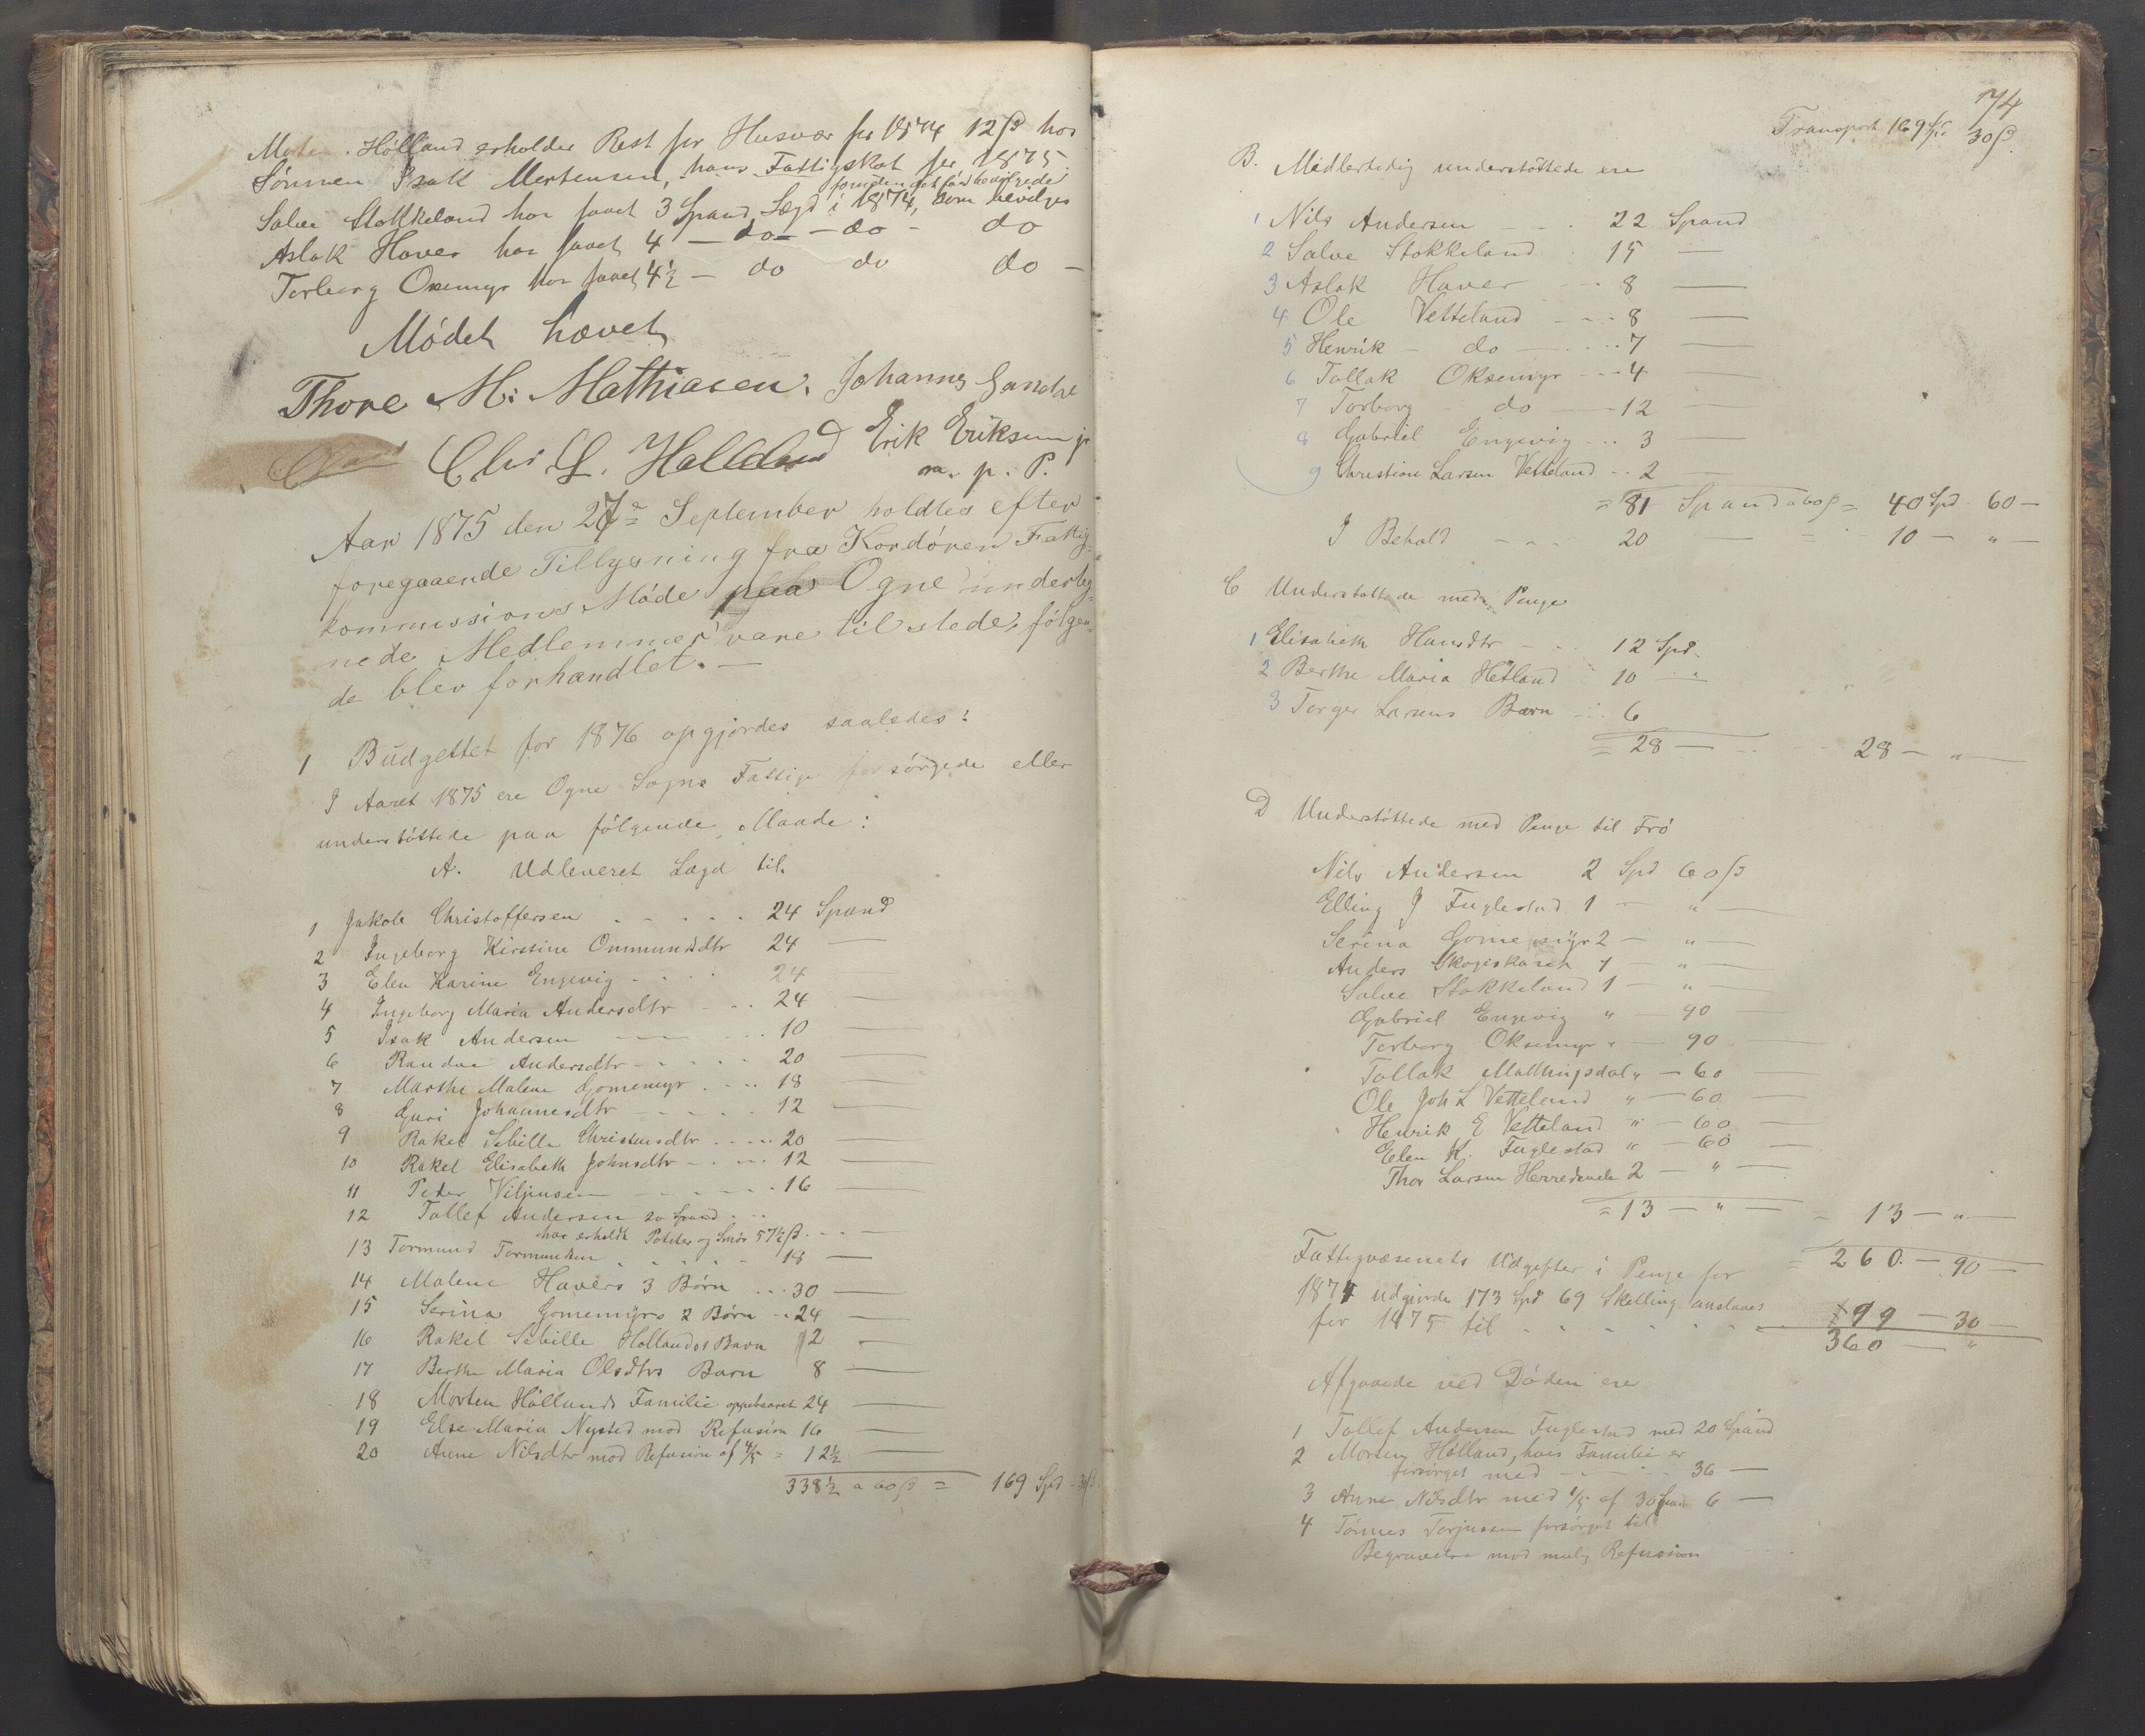 Holland erholder Rest for Husvær for 1874 12 ß hos
Sønnen Isak Mortensen, hans Fattigskat for 1875
foruden det før bevilgede
Salve Stokkeland har faaet 3 Spand Lægd i 1874, som bevilges
Aslak Haver har faaet 4 — do — do - do
Torborg Oxemyr har faaet 4½ — do do do —
Mødet hævet
Thore M: Mathiasen. Johannes
Chr L. Holland Erik Eriksen jr
m. p. P.
Aar 1875 den 27de September holdtes efter
foregaaende Tillysning fra Kordøren Fattig-
kommissions Møde paa Ogne underteg-
nede Medlemmer vare tilstede, følgen-
de blev forhandlet. —
1 Budgettet for 1876 opgjordes saaledes:
I Aaret 1875 ere Ogne Sogns Fattige forsørgede eller
understøttede paa følgende Maade:
A. Udleveret Lægd til.
1 Jakob Christoffersen . - - - . 24 Spand
2 Ingeborg Kirstine Ommundsdtr 24 —
3 Elen Karine Engevig - . . . 24
4 Ingeborg Maria Andersdtr - . . 24 —
5 Isak Andersen - - - . . 10 —
6 Andersdtr - . - - - 20 —
7 Marthe Malene Gomemyr . - . . 18 —
8 Guri Johannesdtr - - . - . 12 —
9 Rakel Sibille Christensdtr - . - . . 20 —
10 Rakel Elisabeth Johnsdtr - - . - . 12 —
11 Peder Viljensen - - - - . 16 —
12 Tollef Andersen 20 Spand . . .
har erholdt Poteter og Smør 57½ ß . - - —
13 Tormund Tormundsen . . . . - 18 —
14 Malene Havers 3 Børn . . . 30 —
15 Serina Gomemyrs 2 Børn - . 24 —
16 Rakel Sibille Hollands Barn 12 -
17 Berthe Maria Olsdtrs Barn 8 —
18 Morten Hollands Familie oppebaaret 24 —
19 Else Maria Nysted mod Refusion 16 —
20 Anne Nilsdtr mod Refusion af 4/5 = 12½
338½ a 60 ß = 169 Spd - 30 ß
74
Transport 169 Spd 30 ß.
B. Midlertidig understøttede ere
1 Nils Andersen - - . 22 Spand
2 Salve Stokkeland . 15 —
3 Aslak Haver - - . 8 —
4 Ole Vetteland - . - . 8 —
5 Henrik - do - . . . . 7 —
6 Tollak Oksemyr - - . 4 —
7 Torborg - do - - 12 —
8 Gabriel Engevig - . . 3 —
9 Christian Larsen Vetteland - . 2
= 81 Spand a 60 ß = 40 Spd - 60 —
I Behold - . . . 20 — = 10 — " —
C Understøttede med Penge
1 Elisabeth Hansdtr - . . 12 Spd.
2 Berthe Maria Hetland . 10 - "
3 Torger Larsens Barn - . . 6
= 28 — . . . . 28 — " —
D Understøttede med Penge til Frø
Nils Andersen 2 Spd 60 ß
Elling J Fuglestad 1 — " —
Serina Gomemyr 2 — " —
Anders 1 — " —
Salve Stokkeland 1 — " —
Gabriel Engevig " — 90 —
Torborg Oksemyr " — 90 —
Tollak Mattingsdal " — 60 —
Ole Joh L Vetteland " — 60 —
Henrik E Vetteland " — 60 —
Elen K. Fuglestad " — 60 —
Thor Larsen 2 — " —
= 13 — " — = 13 — " —
= 260. — 90 —
Fattigvæsenets Udgifter i Penge for
1874 udgjorde 173 Spd 69 Skilling anslaaes
for 1875 til - - - - - - - 99 — 30 —
360 — "
Afgaaede ved Døden ere
1 Tollef Andersen Fuglestad med 20 Spand
2 Morten Holland, hvis Familie er
forsørget med - - - . . 36 —
3 Anne Nilsdtr med 1/5 af 30 Spand 6 —
4 Tønnes Torjussen forsørget til
Begravelse mod mulig Refusion